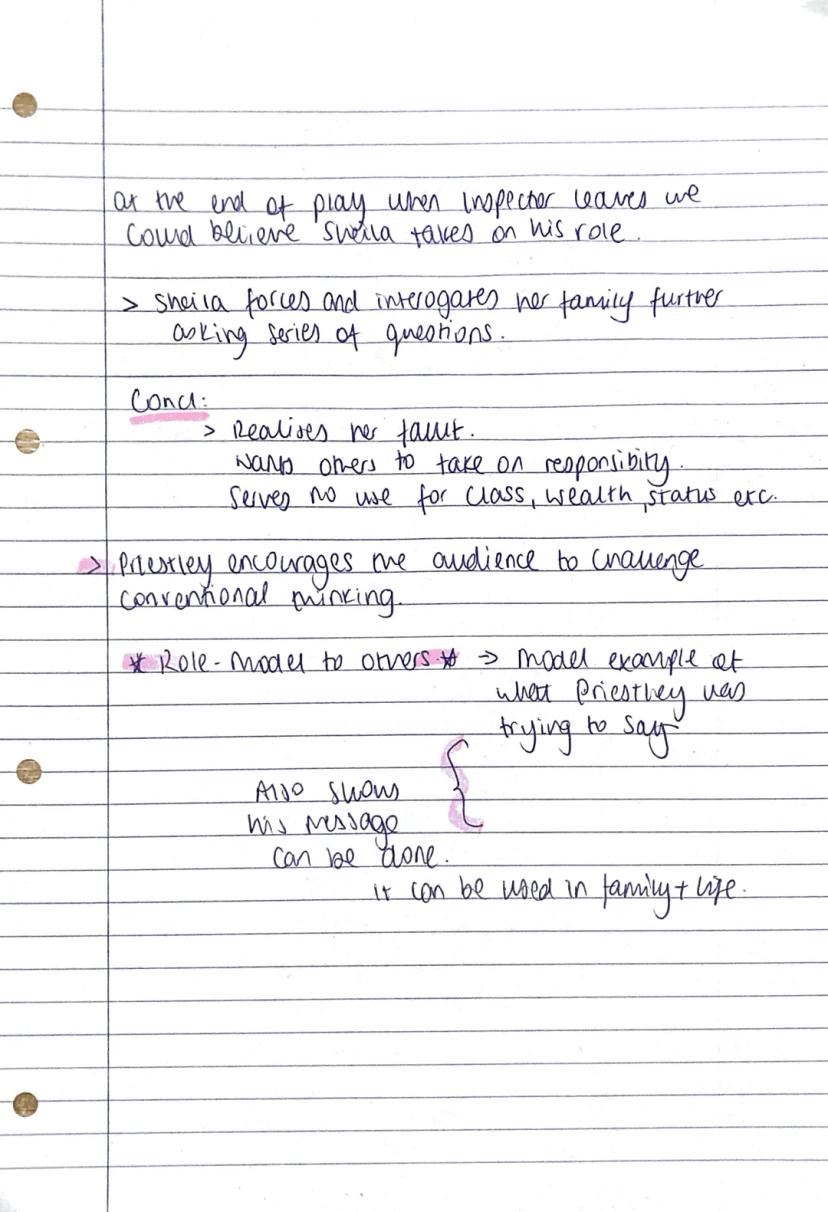 at the end of play when Inspector leaves we
could believe Sheila takes on his role.
> Sheila forces and interogates her family further
asking series of questions.
Concl:
> Realises her fault.
wants others to take on responsibity.
Serves no use for class, wealth, status etc.
> Priestley encourages the audience to challenge
conventional thinking.
* Role-model to others * → model example of
what Priestley was
trying to say
Also shows {
his message
can be done.
it can be used in family + life.